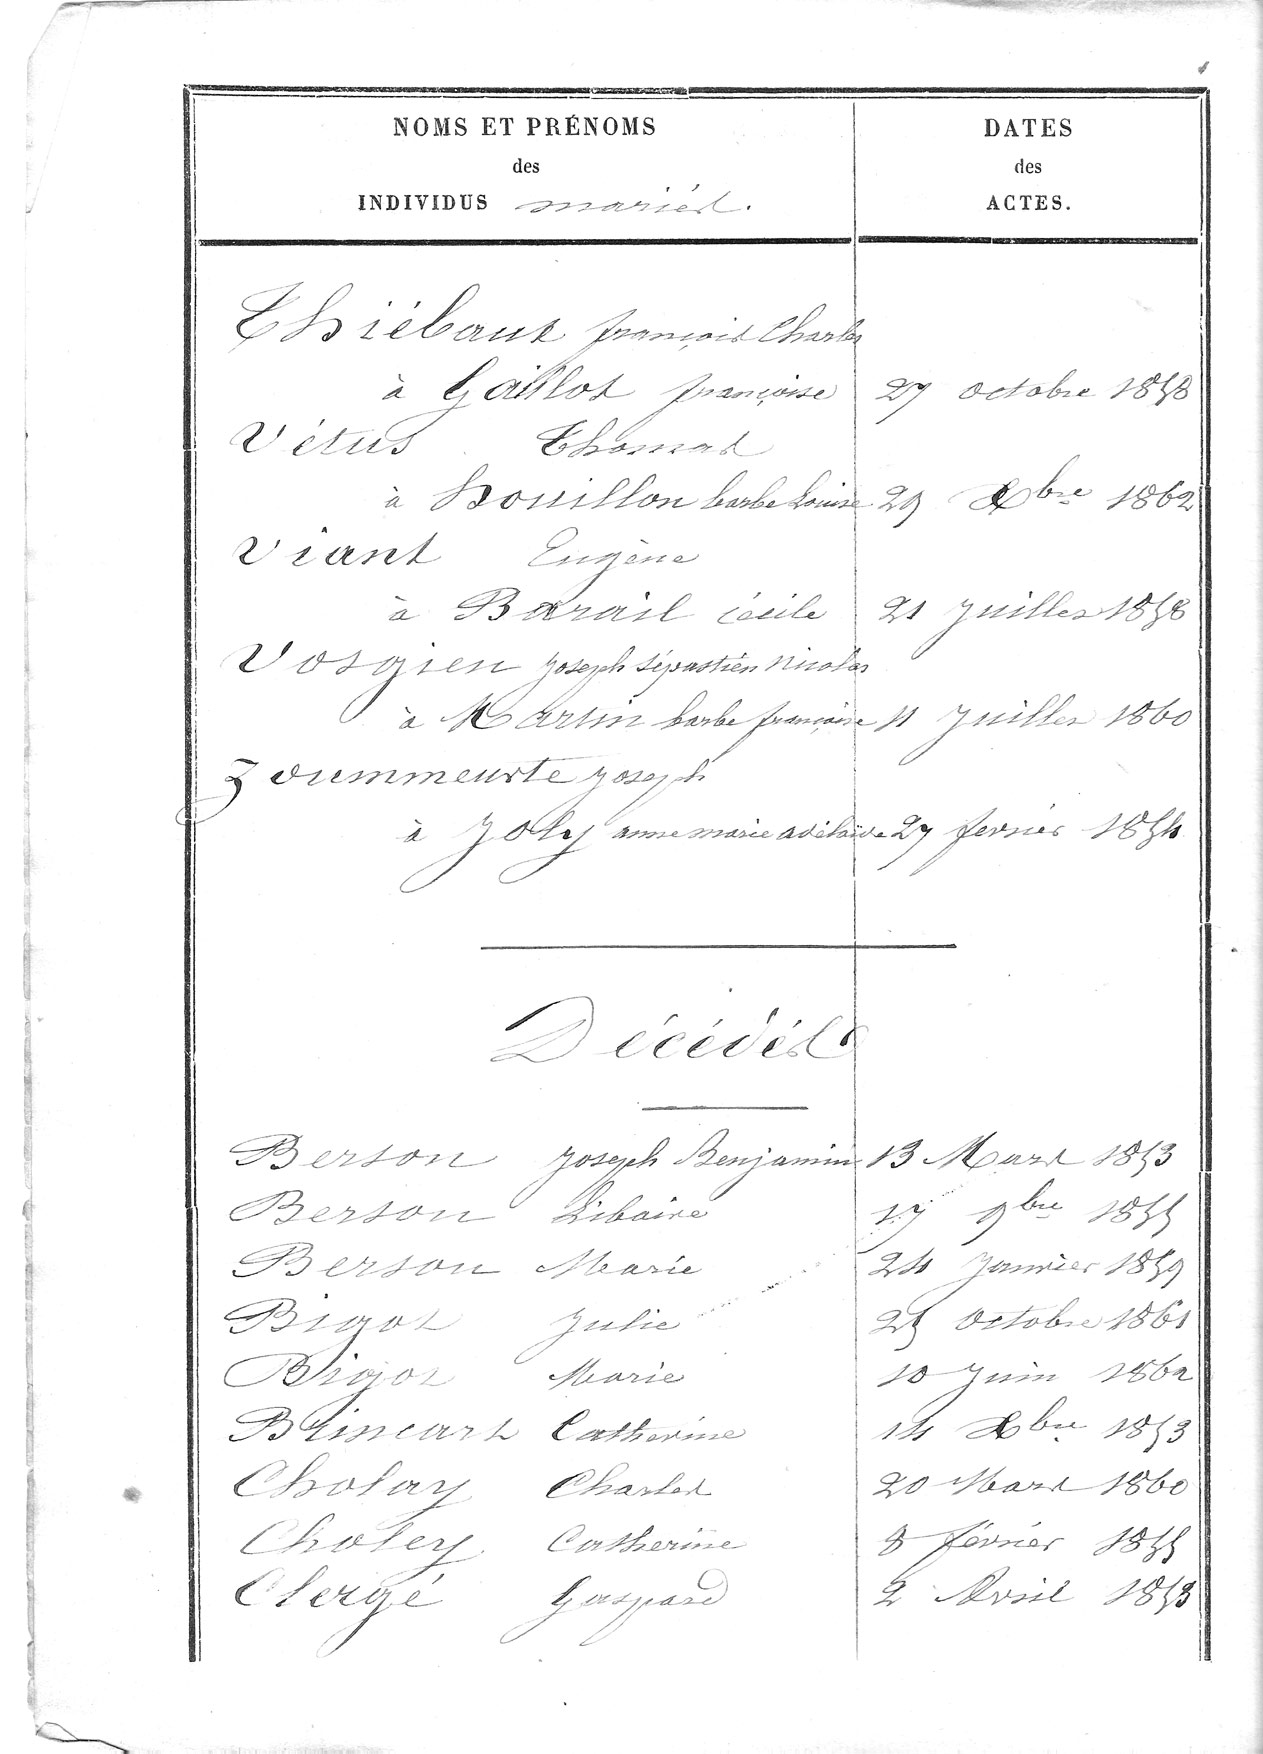 NOMS ET PRÉNOMS DATES
des des
INDIVIDUS mariés. ACTES.
Thiébaux françois Charles
à Gaillot françoise 27 octobre 1858
Vétus Thomas
à houillon barbe Louise 29 Xbre 1862
Viant Eugène
à Barail Cécile 21 Juillet 1858
Vosgien Joseph Sépastien Nicolas
à Martin barbe françoise 11 Juillet 1860
Zoummeurte Joseph
à Joly anne marie adélaïde 27 fevrier 1854
Décédés
Berson Joseph Benjamin 13 Mars 1853
Berson Libaire 17 9bre 1855
Berson Marie 24 Janvier 1859
Bigot Julie 25 octobre 1861
Bigot Marie 10 Juin 1862
Brincart Catherine 14 Xbre 1853
Cholay Charles 20 Mars 1860
Choley Catherine 8 février 1855
Clergé Gaspard 2 Avril 1853